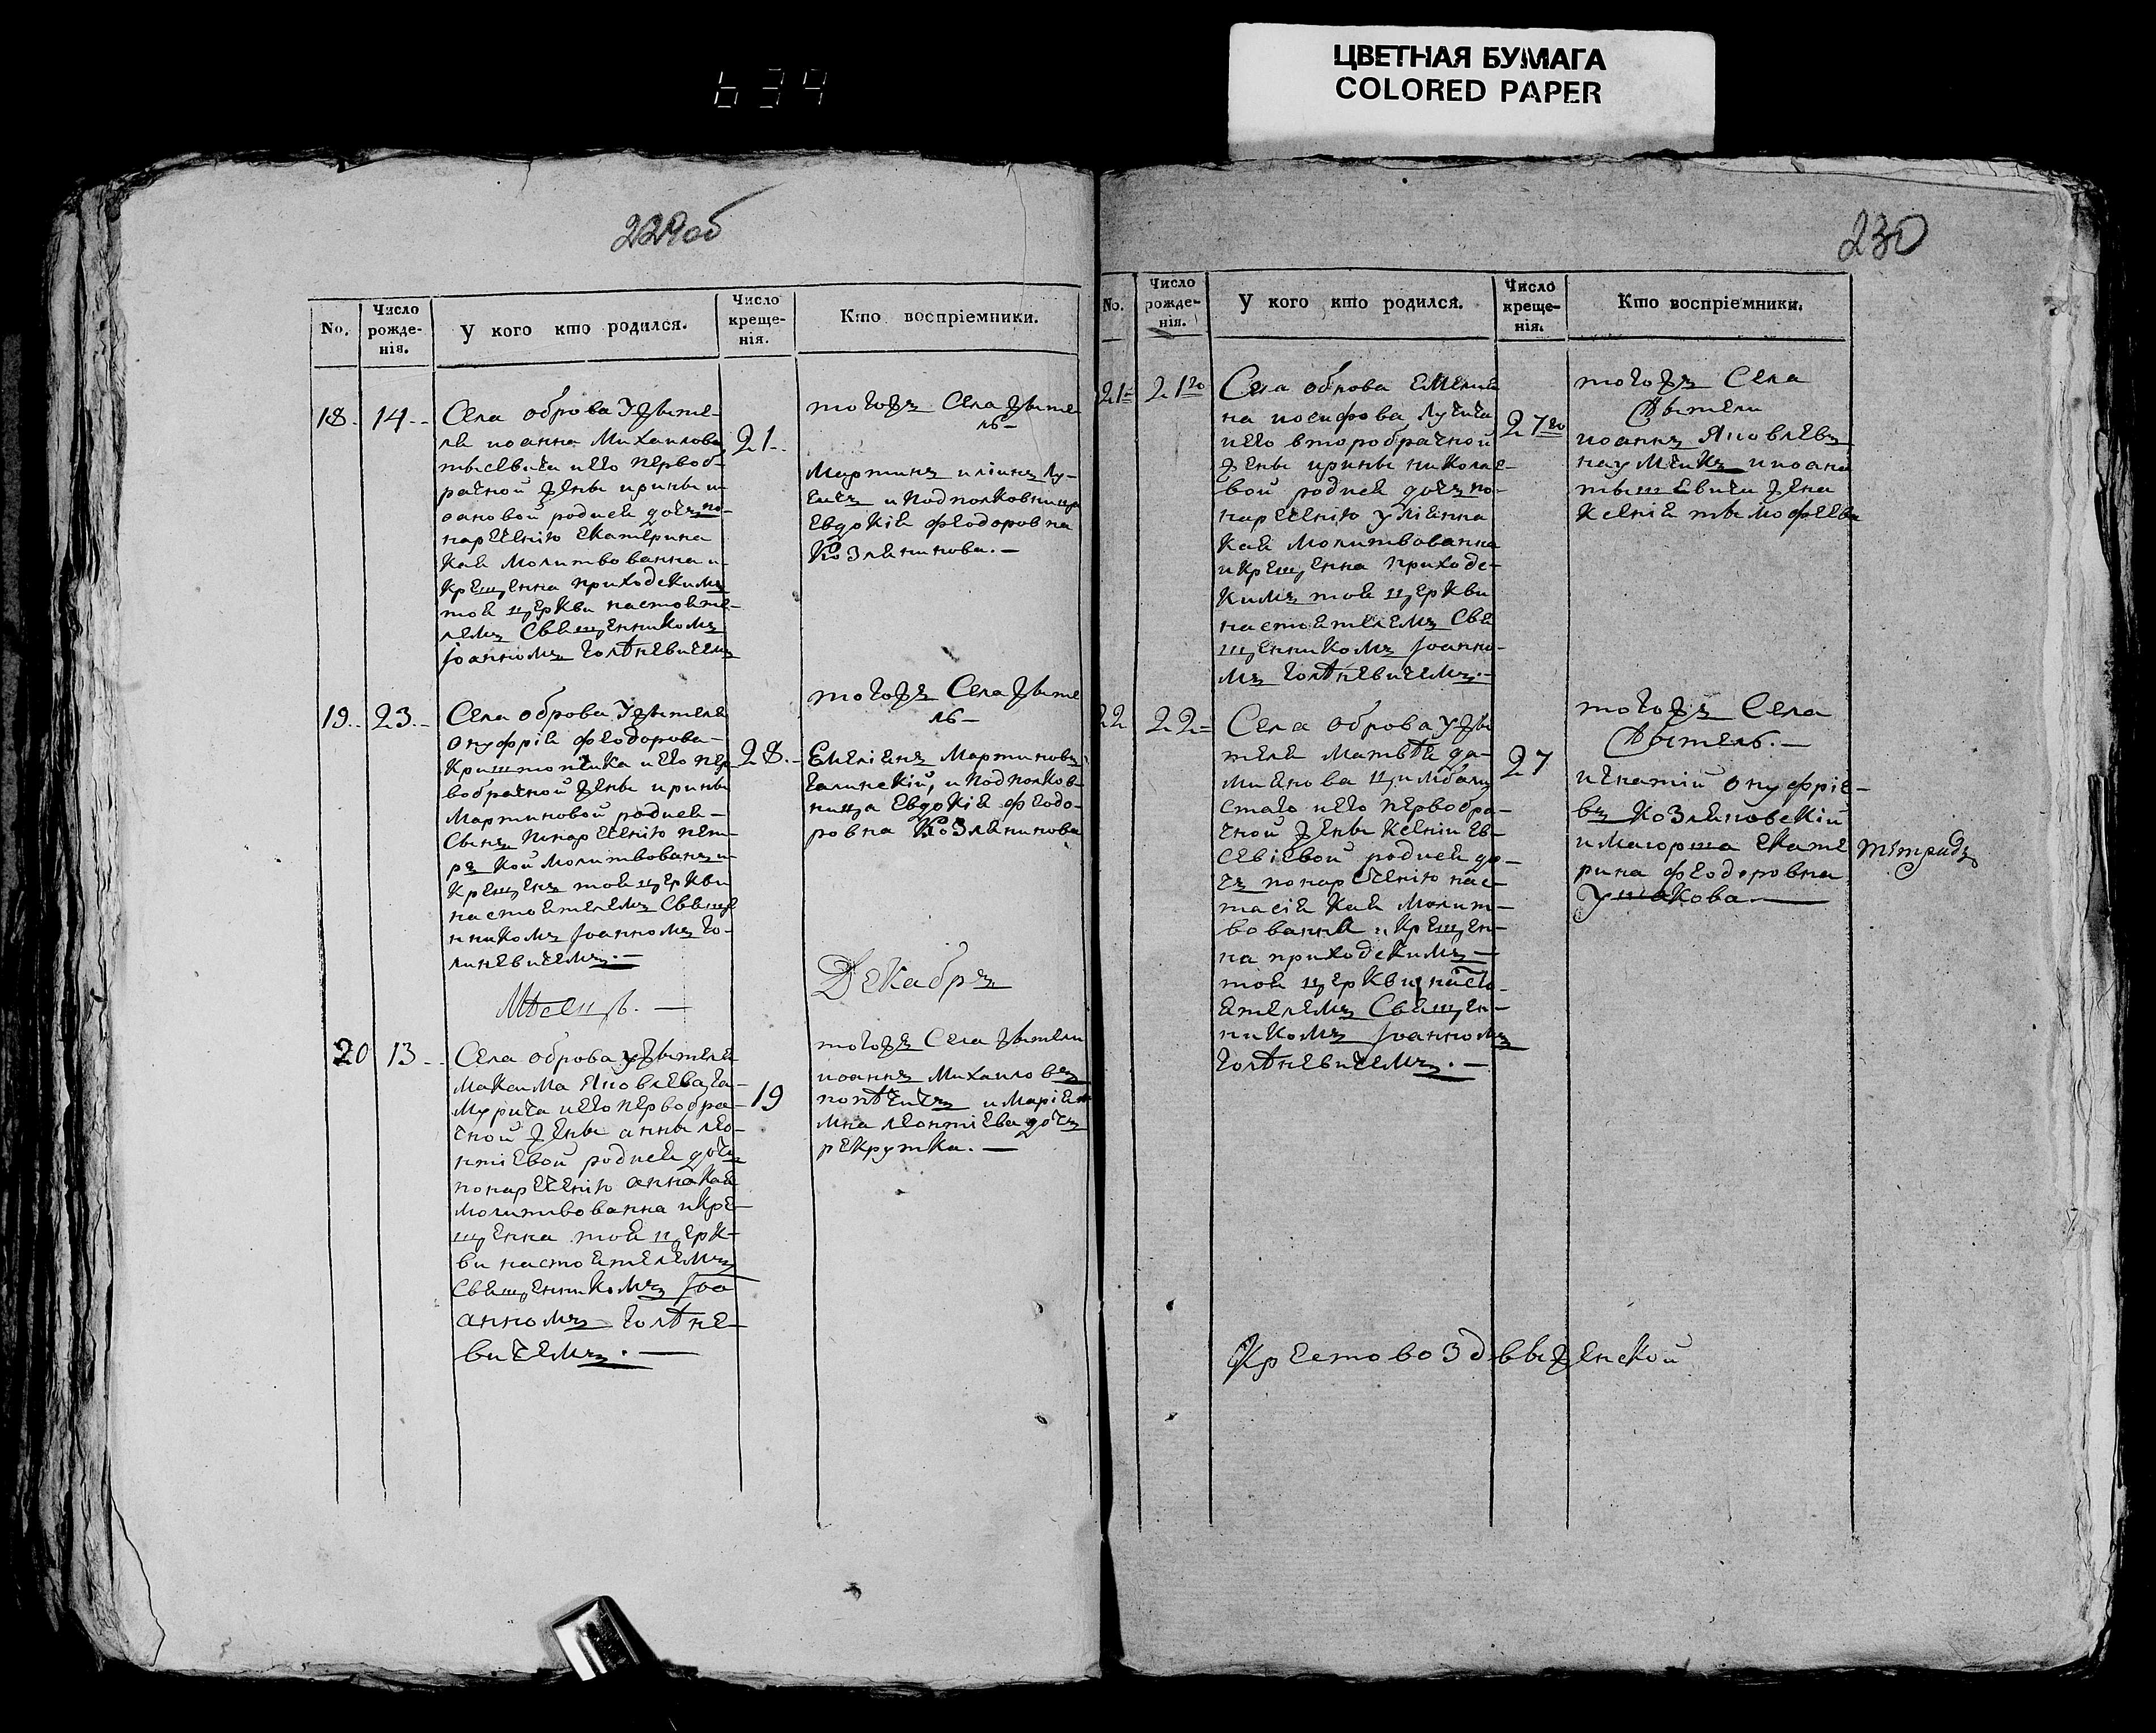 634
ЦВЕТНАЯ БУМАГА
COLORED PAPER
229об
No.
Число рожде-нія.
У кого кто родился.
Число креще-нія.
Кто воспріемники.
18. 14.
Села оброва Ужите-
ля иоанна Михаилова
и его первоб-
рачной жены ирины и-
оановой родися дочъ по
наречению екатерина
кая молитвованна и
крещенна приходскимъ
тоя церкви настояте-
лемъ Священникомъ
Іоанномъ Голѣневичемъ
21.
тогожъ Села жите
ль
Мартинъ илиинъ Лу-
и подполковница
евдокія феодоровна
Козлянинова.
19. 23.
Села оброва Ужителя
онуфрія феодорова
и его пер
вобрачной жены ирины
Мартиновой родися
Сынъ понаречению пет-
ръ кой молитвованъ и
крещенъ тоя церкви
настоятелемъ Священ
никомъ Іоанномъ Го-
линевичемъ.
28.
тогожъ Села жите
ль
Емеліянъ Мартиновъ
Галинский, и подполков-
ница евдокія феодо-
ровна Козлянинова
Мѣсяцъ. Декабръ
20 13
Села оброва ужителя
Максима Яковлева
и его первобра-
чной жены анны лео-
нтіевой родися дочъ
понаречению анна кая
молитвованна и кре-
щенна тоя церк-
ви настоятелемъ
Священникомъ Іоа
анномъ Голѣне-
вичемъ.
19
тогожъ Села жители
иоаннъ Михаиловъ
и Марія
леонтіева дочъ
рекрутка.
230
No.
Число рожде-нія.
У кого кто родился.
Число креще-нія.
Кто воспріемники.
21 21го
Села оброва емелия
на иосифова Лучича
и его второбрачной
жены ирины николае-
вой родися дочъ по-
наречению улиянна
кая молитвованна
и крещенна приходс-
кимъ тоя церкви
настоятелемъ Свя
щенникомъ Іоанно-
мъ Голѣневичемъ.
27го
тогожъ Села
жители
иоаннъ Яковлевъ
Наумчикъ и иоана
жена
ксения тимофеева
22 22
Села оброва ужи
теля матвѣя да-
миянова
и его первобра-
чной жены ксении ев-
севіевой родися до-
чъ понаречению нас-
тасія кая молит-
вованна и крещен-
на приходскимъ
тоя церкви насто-
ятелемъ Священ-
никомъ Іоанномъ
Голѣневичемъ.
27
тогожъ Села
житель.
игнатий онуфріе-
въ козляковский
и маиорша екате
рина феодоровна
Ушакова
Крестовоздвиженской